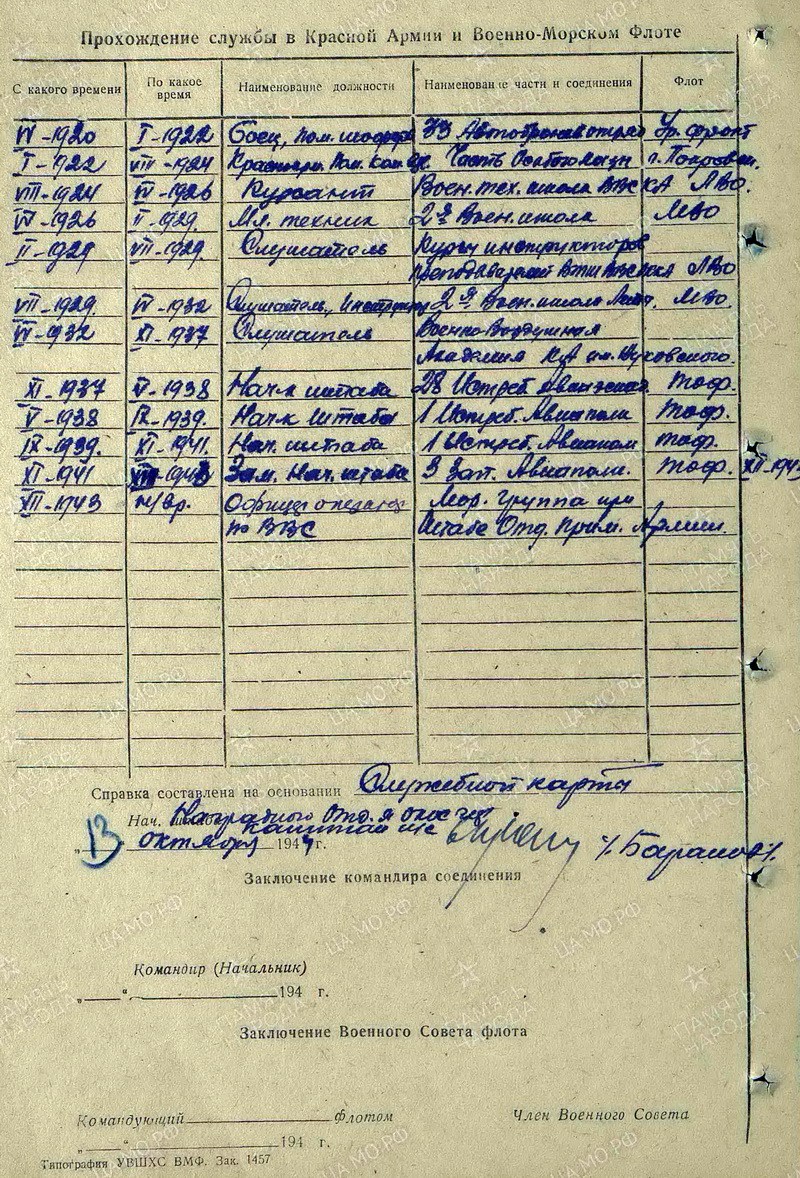 Прохождение службы в Красной Армии и Военно-Морском Флоте
С какого времени По какое время Наименование должности Наименование части и соединения Флот
IV-1920 I-1922 Боец, пом. шофера 33 Автобронеотряд фронт
I-1922 VIII-1924 Часть г.
VIII-1924 IV-1926 Курсант Воен. тех. школа ВВС КА ЛВО.
IV-1926 II-1929. Мл. техник 2я Воен. школа
II-1929 VII-1929. Слушатель Курсы инструкторов
ВВС КА ЛВО
VII-1929. IV-1932 Слушатель, Инструктор 2я Воен. школа
IV-1932 XI-1937 Слушатель Военно-Воздушная
Академия КА им. Жуковского.
XI-1937 V-1938 Нач-к штаба 28 Истреб. Тоф.
V-1938 IX-1939. Нач-к Штаба 1 Истреб. Авиаполк Тоф.
IX-1939. XI-1941. Нач. штаба 1 Истреб. Авиаполк Тоф.
XI-1941 Зам. Нач. штаба 3 Зап. Авиаполк. Тоф. XII-1943
XII-1943 н/вр. Офицер Мор. Группа при
по ВВС Штабе Отд. Прим. Армии.
Справка составлена на основании Служебной карты
Нач. Наградного Отд-я
„13 октября 1944 г. капитан /Баранов/.
Заключение командира соединения
Командир (Начальник)
„ “ 194 г.
Заключение Военного Совета флота
Командующий Флотом Член Военного Совета
„ “ 194 г.
Типография УВШХС ВМФ. Зак. 1457
ПАМЯТЬ НАРОДА
ЦА МО.РФ